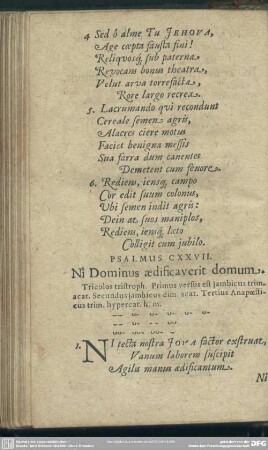 4. Sed ô alme Tu JEHOVA,
Age cœpta fausta fini!
Reliqvosq; sub paterna
Revocans bonus theatra,
Velut arva torrefacta,
Rore largo recrea.
5. Lacrumando qvi recondunt
Cereale semen agris,
Alacres ciere motus
Faciet benigna messis
Sua farra dum canentes
Demetent cum fenore.
6. Rediens, iensq; campo
Cor edit suum colonus,
Ubi semen indit agris:
Dein at suos maniplos,
Rediens, iensq; læto
Colligit cum jubilo.
PSALMUS CXXVII.
Ni Dominus ædificaverit domum.
Tricolos tristroph. Primus versus est jambicus trim.
acat. Secundus jambicus dim. acat. Tertius Anapæsti-
cus trim. hypercat. h. m:
1. NI tecta nostra JOVA factor exstruat,
Vanum laborem suscipit
Agila manus ædificantum.
Ni